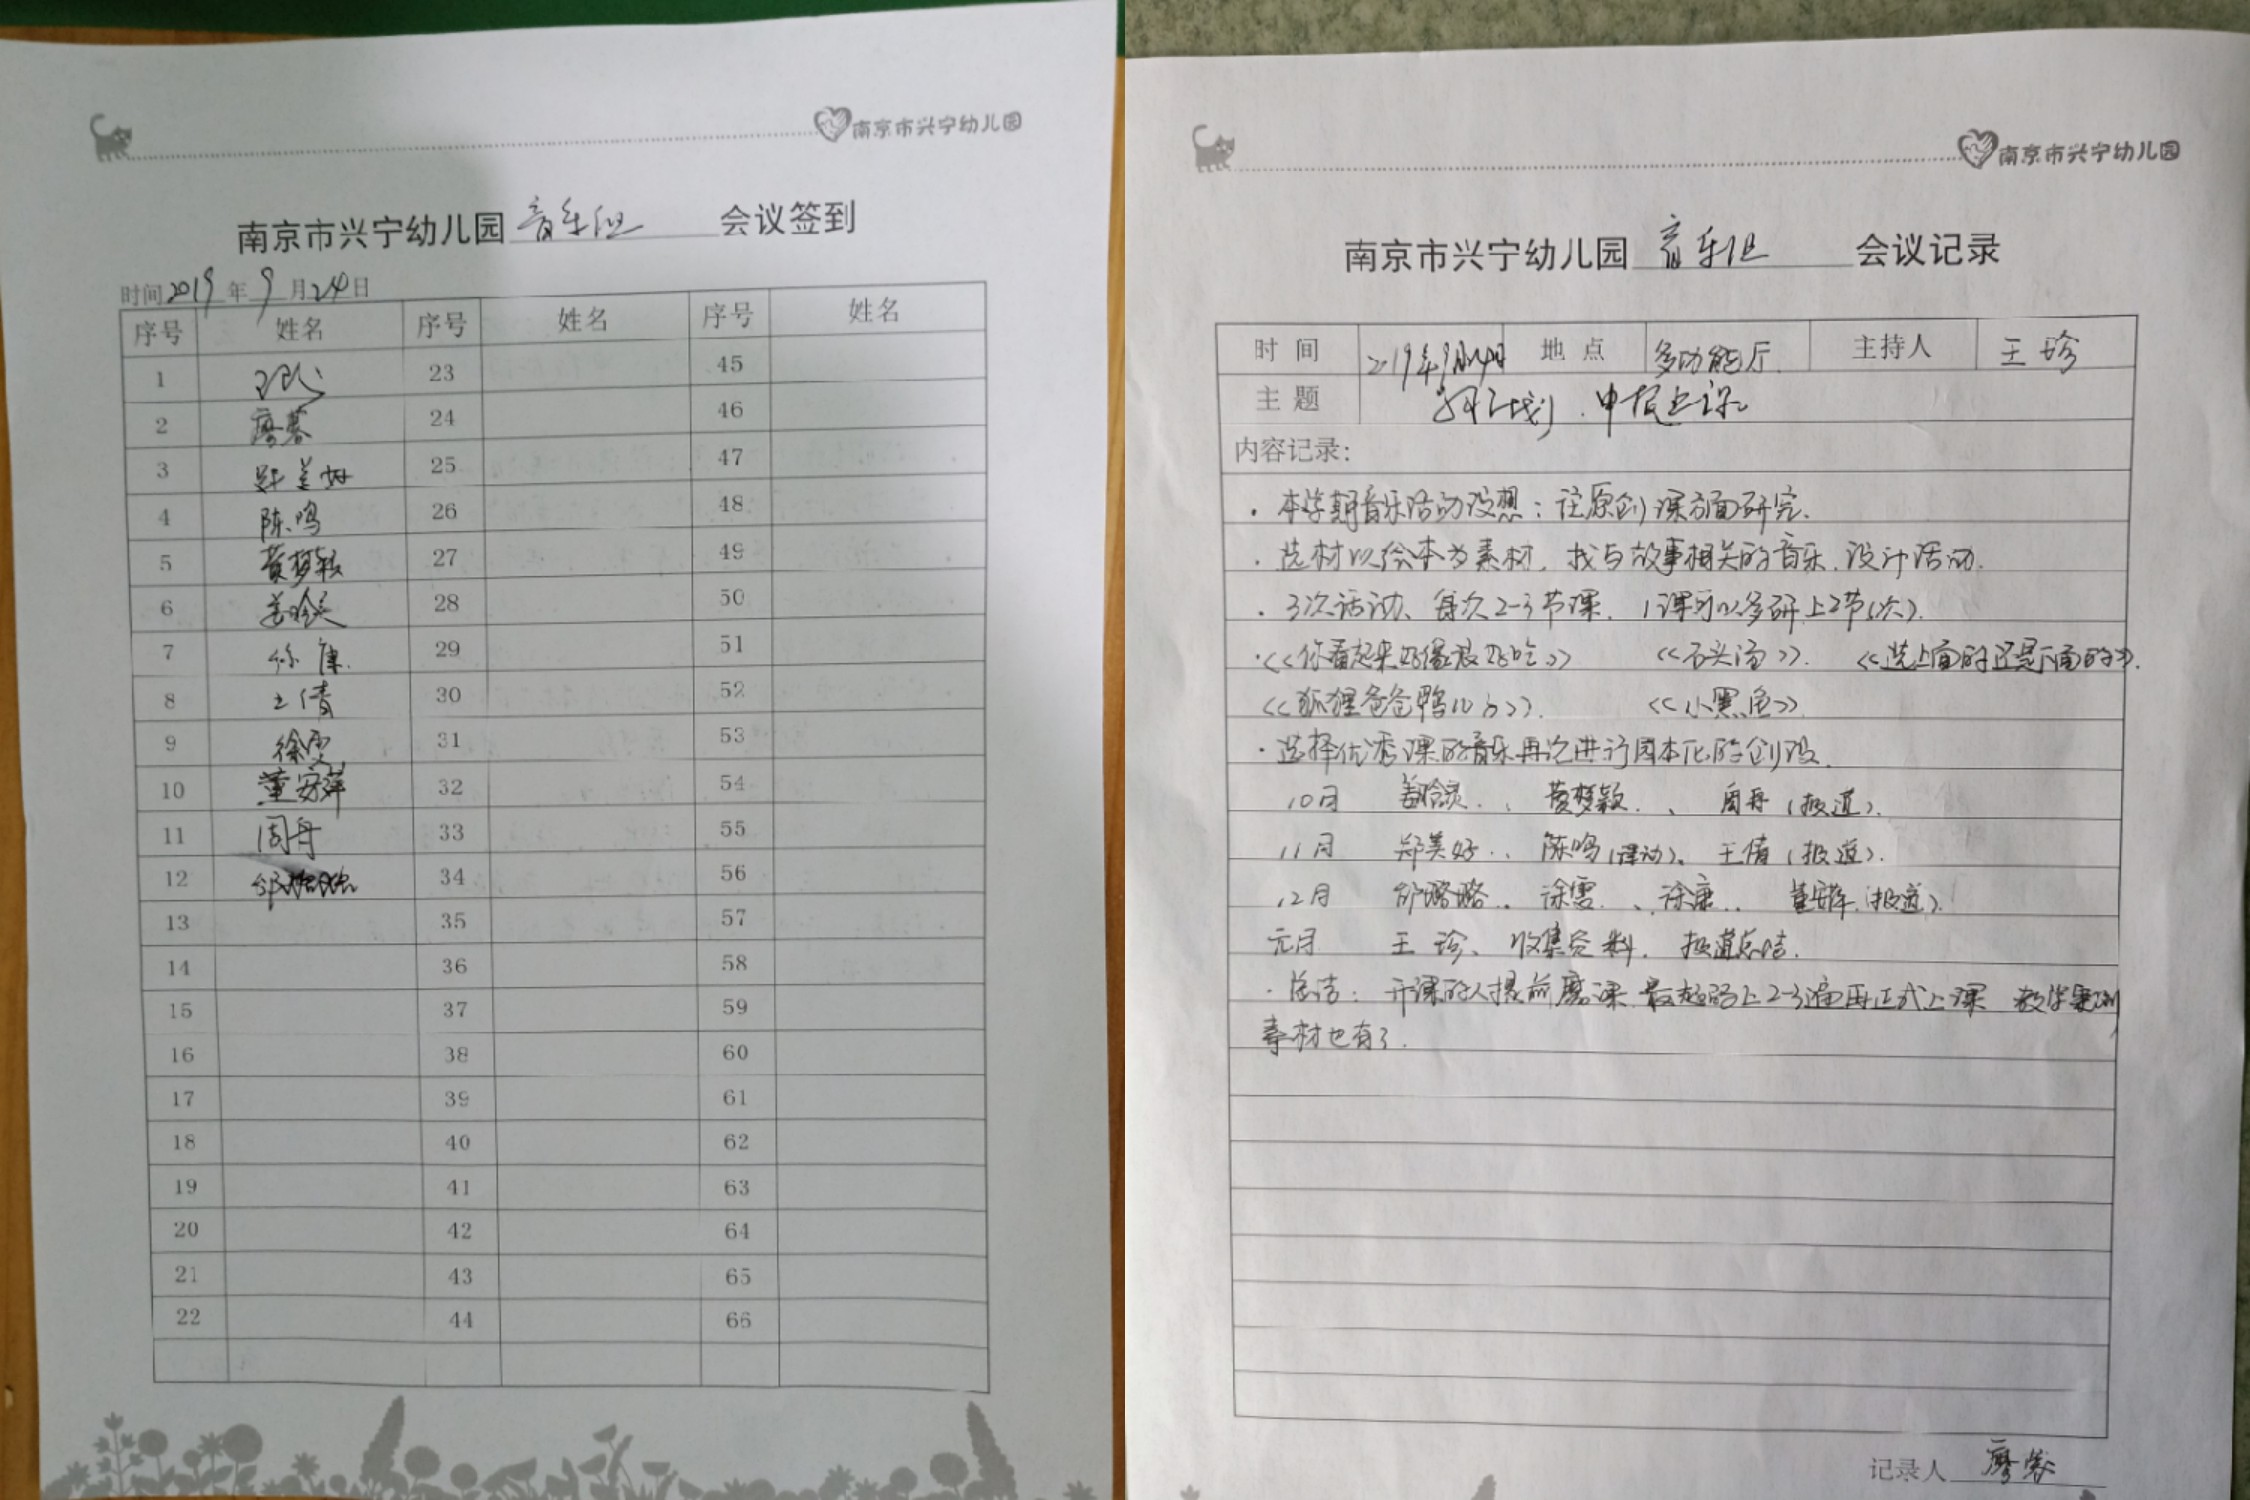 南京市兴宁幼儿园
南京市兴宁幼儿园 音乐组 会议签到
时间 2019 年 9 月 24 日
序号 姓名 序号 姓名 序号 姓名
1 23 45
2 廖蓉 24 46
3 郑美好 25 47
4 陈鸣 26 48
5 黄梦颖 27 49
6 姜晗灵 28 50
7 徐康 29 51
8 王倩 30 52
9 徐雯 31 53
10 董安萍 32 54
11 周丹 33 55
12 邰璐璐 34 56
13 35 57
14 36 58
15 37 59
16 38 60
17 39 61
18 40 62
19 41 63
20 42 64
21 43 65
22 44 66
南京市兴宁幼儿园
南京市兴宁幼儿园 音乐组 会议记录
时间 2019年9月24日 地点 多功能厅 主持人 王珍
主题 计划、申报上课
内容记录：
· 本学期音乐活动设想：往原创课方面研究.
· 选材以绘本为素材, 找与故事相关的音乐, 设计活动.
· 3次活动、每次2-3节课, 1课可以多研上2节(次).
·《你看起来好像很好吃》 《石头汤》. 《选上面的还是下面的》.
《狐狸爸爸鸭儿子》. 《小黑鱼》.
· 选择优秀课的音乐再次进行园本化的创设.
10月 姜晗灵、黄梦颖、周丹(报道).
11月 郑美好、陈鸣(律动)、王倩(报道).
12月 邰璐璐、徐雯、徐康、董安萍(报道).
元月 王珍、收集资料, 报道总结.
· 总结：开课的人提前磨课, 最起码上2-3遍再正式上课 教学案例
素材也有了.
记录人 廖蓉